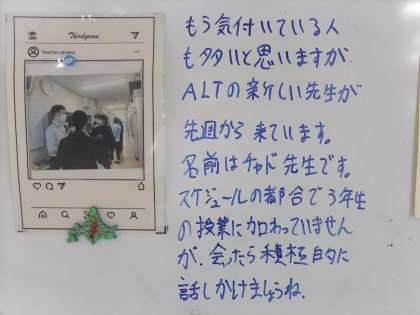 Thirdgram
もう気付いている人
も多いと思いますが、
ALTの新しい先生が
先週から来ています。
名前はチャド先生です。
スケジュールの都合で3年生
の授業に加わっていません
が、会ったら積極的に
話しかけましょうね。